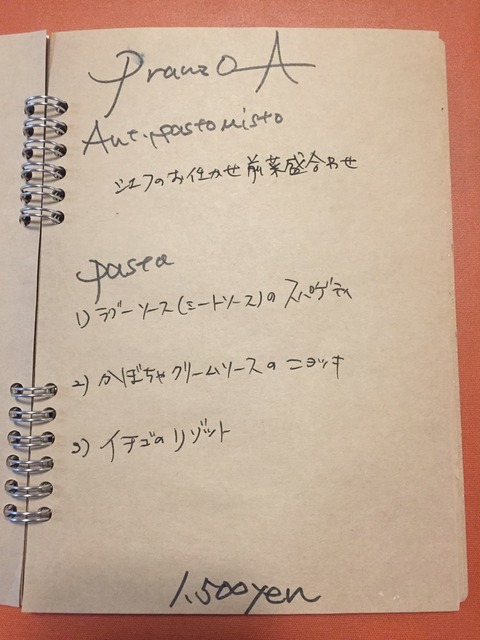 Pranzo A
Antipasto misto
シェフのお任かせ前菜盛合わせ
pasta
1) ラグーソース(ミートソース)のスパゲティ
2) かぼちゃクリームソースのニョッキ
3) イチゴのリゾット
1,500yen